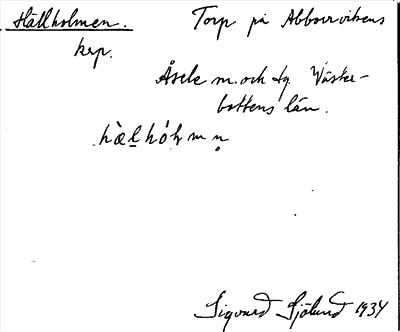 Hällholmen. Torp på Abborvikens
krp.
Åsele m. och tg. Väster-
bottens län.
hæ̀l hóɫmn̥
Sigvard Sjölund 1934